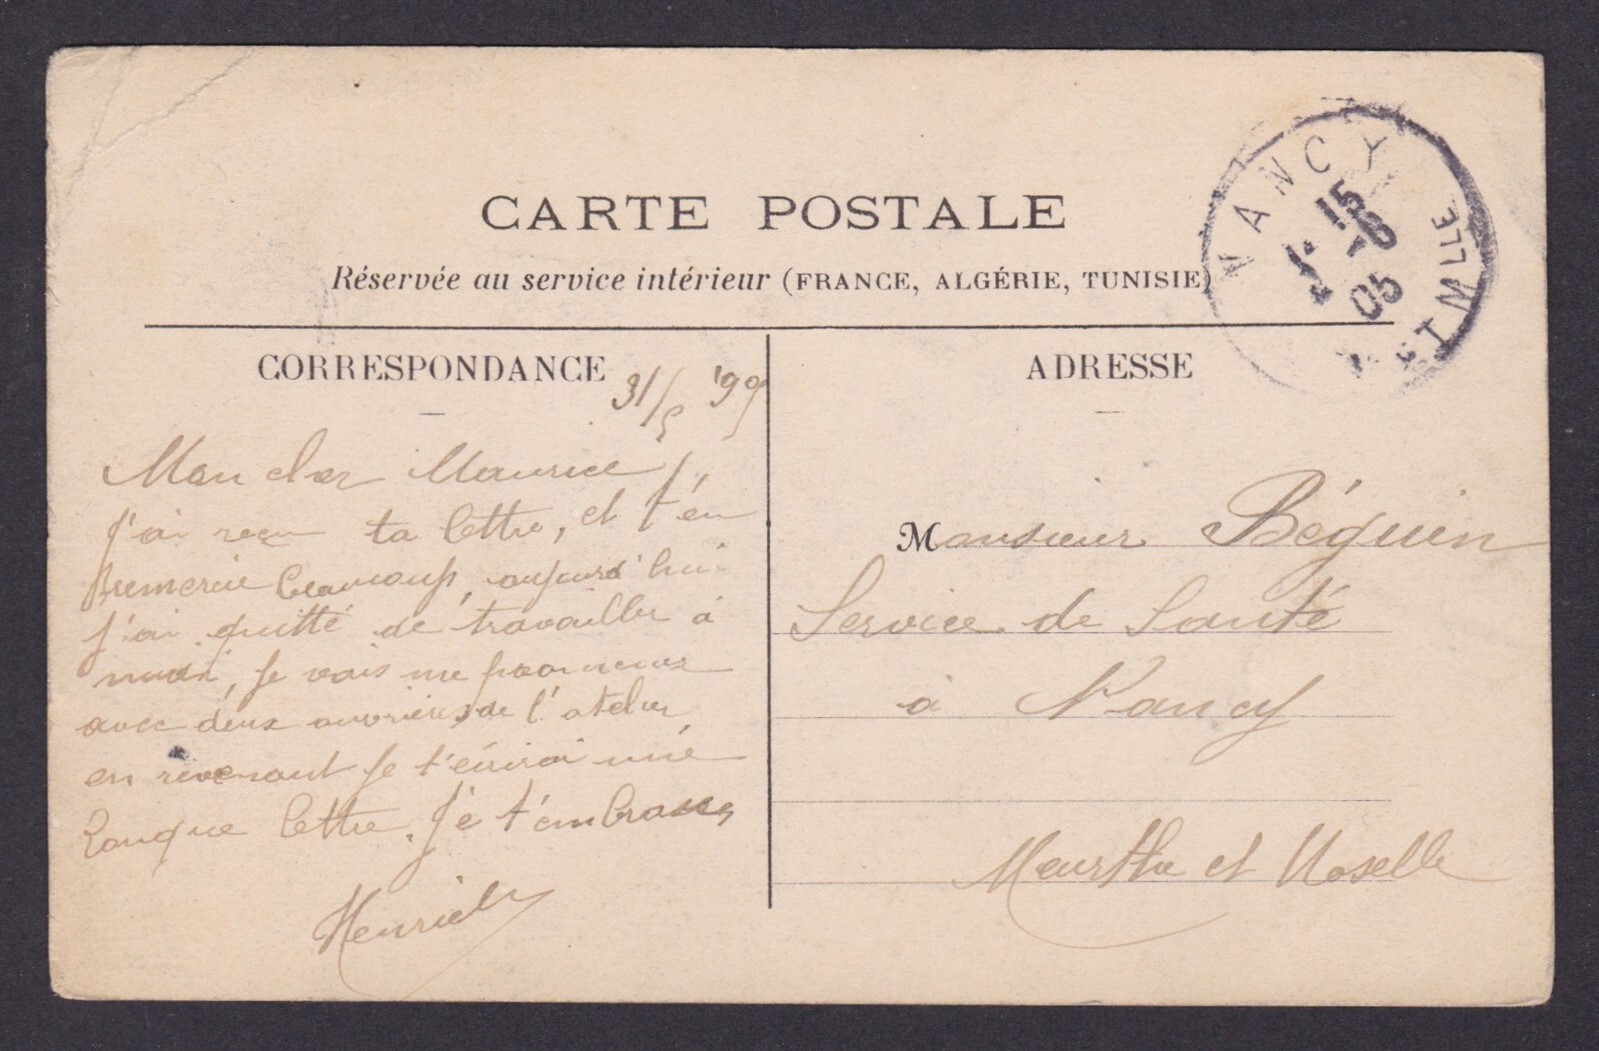 CARTE POSTALE
Réservée au service intérieur (FRANCE, ALGÉRIE, TUNISIE)
NANCY
15 -6
05
CORRESPONDANCE
31/5 '99
Mon cher Maurice
J'ai reçu ta lettre, et t'en
remercie beaucoup, aujourd'hui
j'ai quitté de travailler à
midi, je vais me promener
avec deux ouvriers de l'atelier
en revenant je t'écrirai une
longue lettre. Je t'embrasse
ADRESSE
Monsieur Béguin
Service de Santé
à Nancy
Meurthe et Moselle